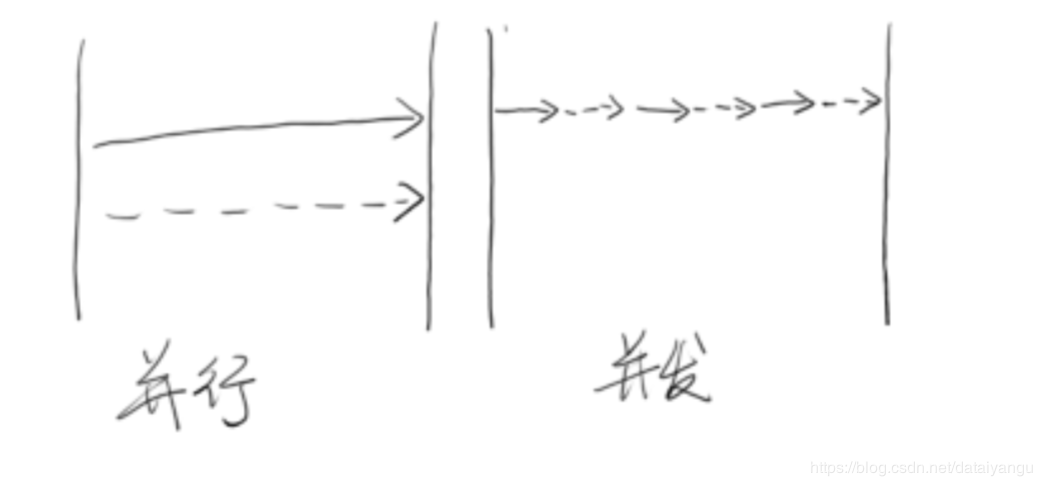 并行
并发
https://blog.csdn.net/dataiyangu